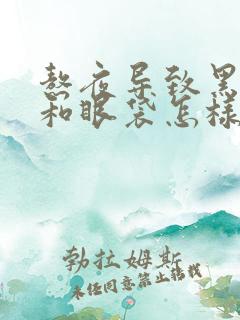 熬夜导致黑
和眼袋怎样
勃拉姆斯
未经同意禁止转载